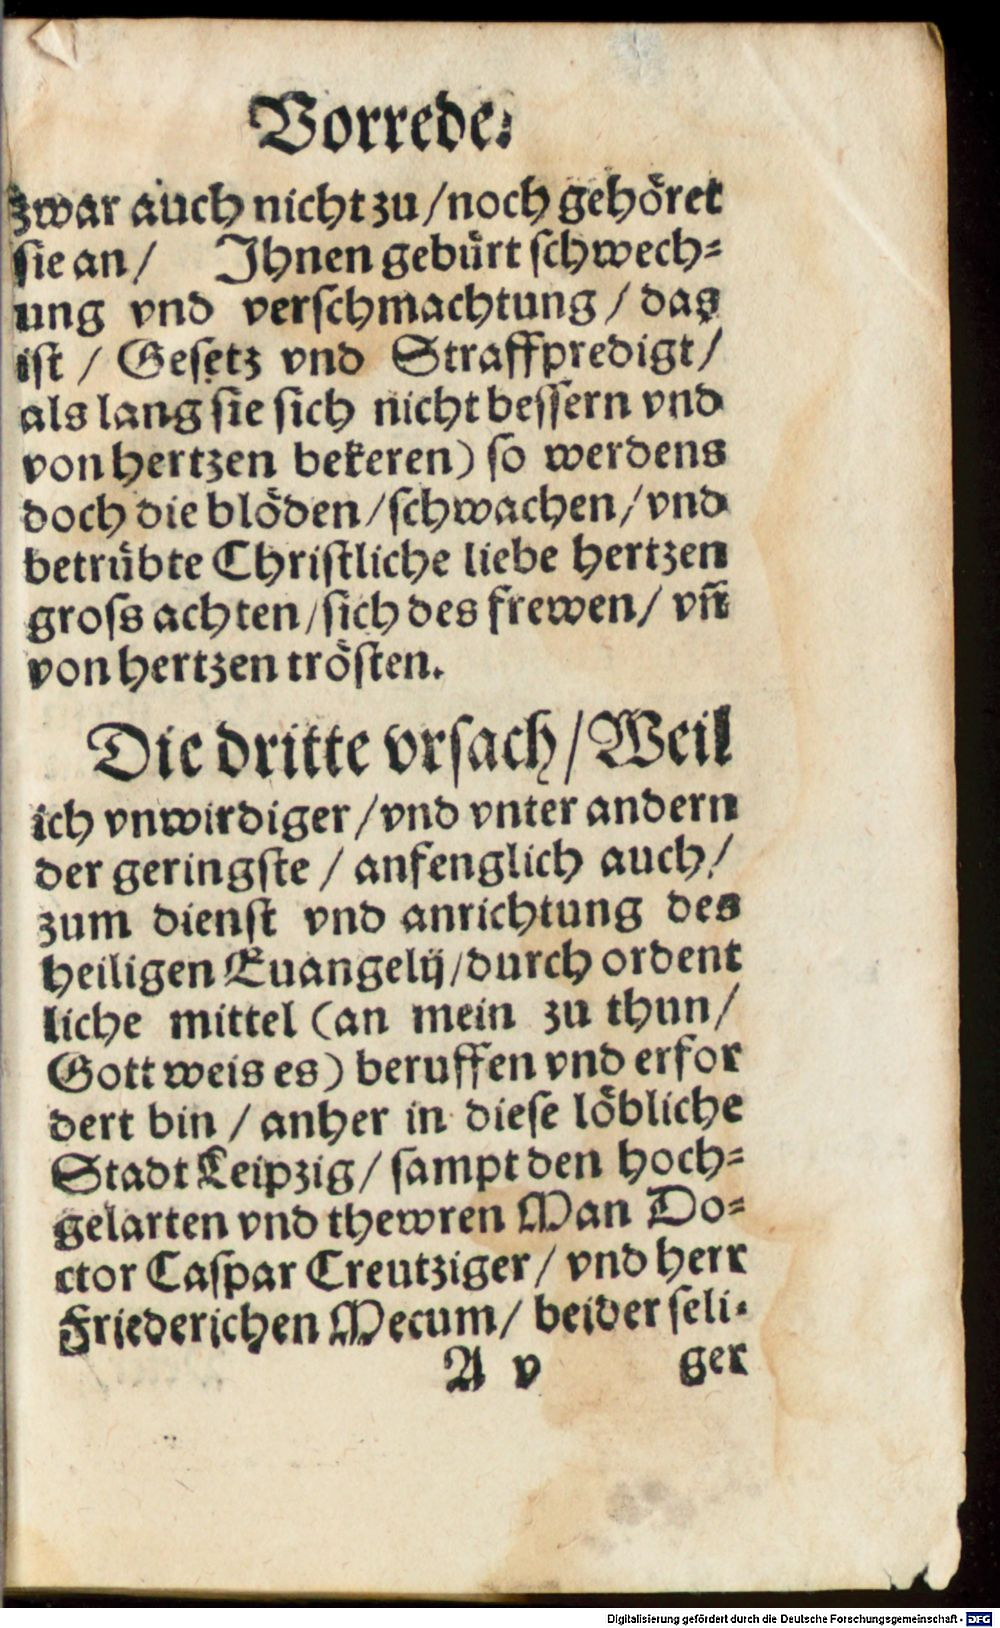 Vorrede.
zwar auch nicht zu / noch gehöret
sie an / Ihnen gebürt schwech⸗
ung vnd verschmachtung / das
ist / Gesetz vnd Straffpredigt /
als lang sie sich nicht bessern vnd
von hertzen bekeren) so werdens
doch die blöden / schwachen / vnd
betrübte Christliche liebe hertzen
gross achten / sich des frewen / vñ
von hertzen trösten.
Die dritte vrsach / Weil
ich vnwirdiger / vnd vnter andern
der geringste / anfenglich auch /
zum dienst vnd anrichtung des
heiligen Euangelij / durch ordent
liche mittel (an mein zu thun /
Gott weis es) beruffen vnd erfor
dert bin / anher in diese löbliche
Stadt Leipzig / sampt den hoch⸗
gelarten vnd thewren Man Do⸗
ctor Caspar Creutziger / vnd herr
Friederichen Mecum / beider seli⸗
A v ger
Digitalisierung gefördert durch die Deutsche Forschungsgemeinschaft - DFG